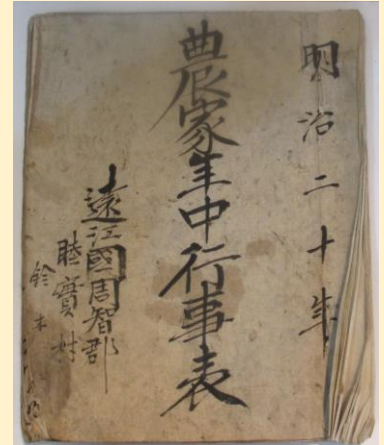 明治二十年
農家年中行事表
遠江國周智郡
睦實村
鈴木